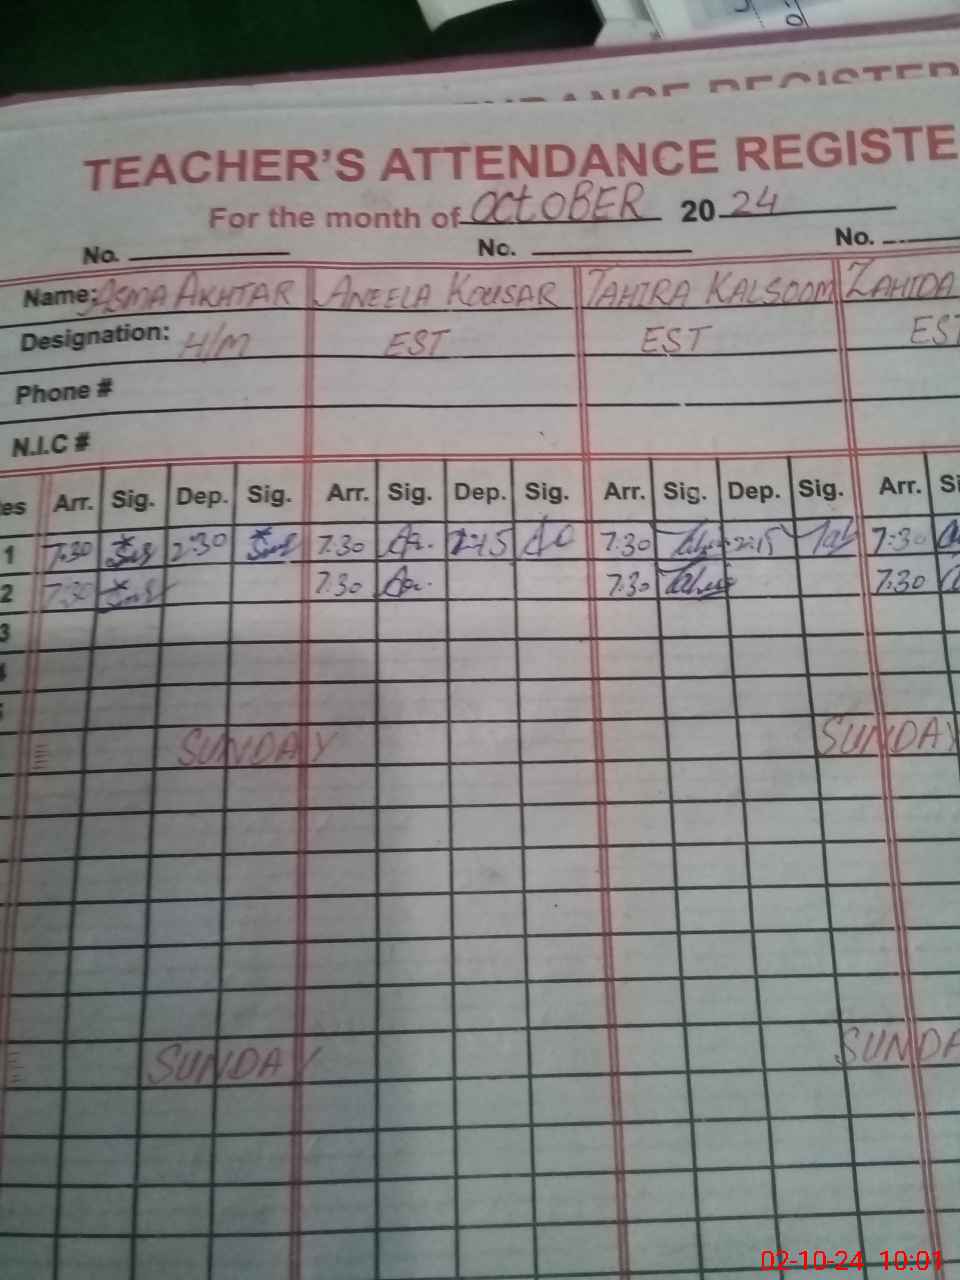 TEACHER'S ATTENDANCE REGISTE
For the month of OCTOBER 20 24
No. No. No.
Name: ASMA AKHTAR ANEELA KOUSAR TAHIRA KALSOOM ZAHIDA
Designation: H/M EST EST EST
Phone #
N.I.C #
es Arr. Sig. Dep. Sig. Arr. Sig. Dep. Sig. Arr. Sig. Dep. Sig. Arr. Si
1 7:30 2:30 7:30 2:45 7:30 2:15 7:30
2 7:30 7:30 7:30 7:30
3
4
5
SUNDAY SUNDAY
SUNDAY SUNDA
02-10-24 10:01